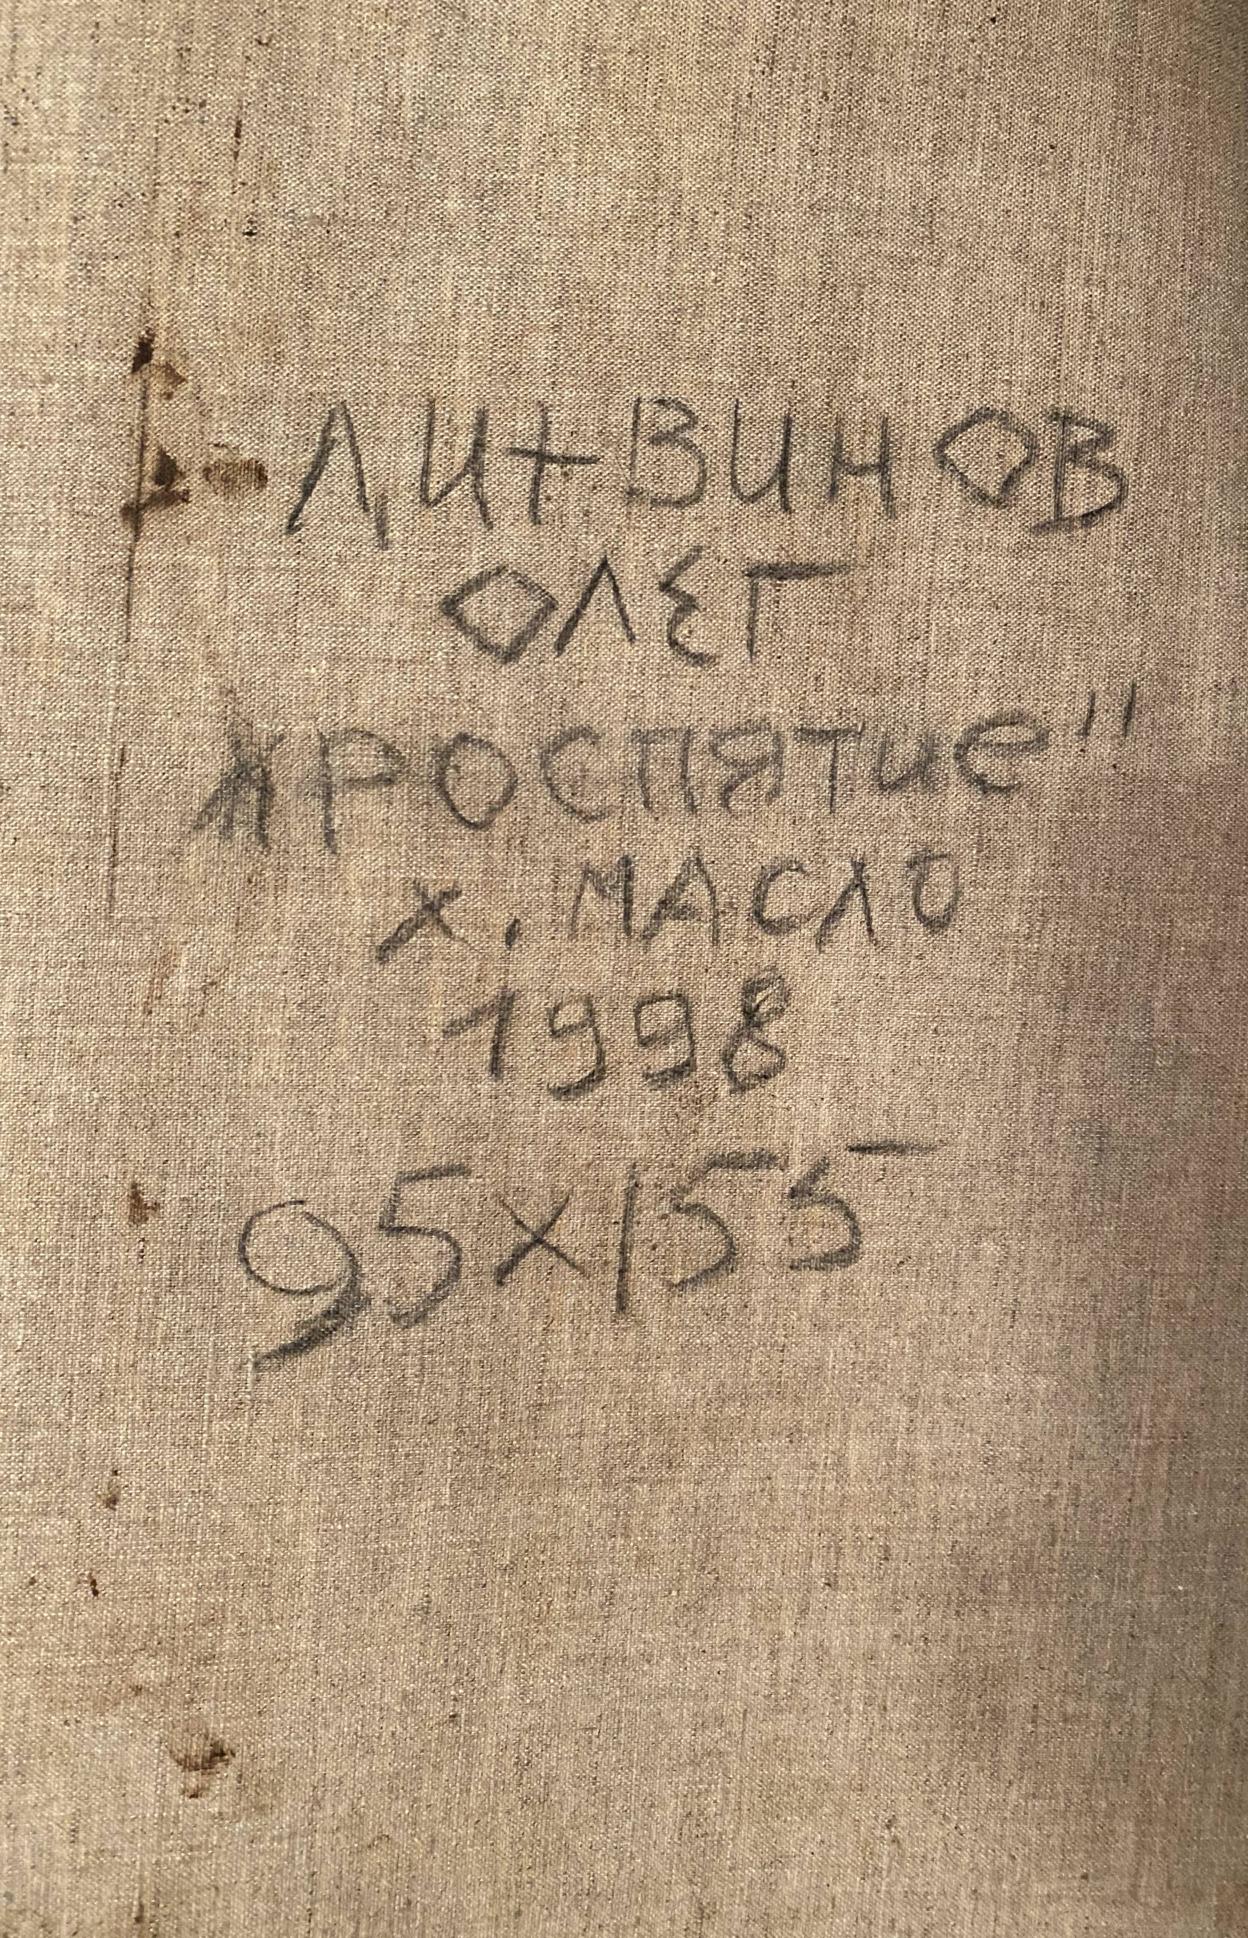 ЛИТВИНОВ
ОЛЕГ
"РОСПЯТИЕ"
х. МАСЛО
1998
95х155